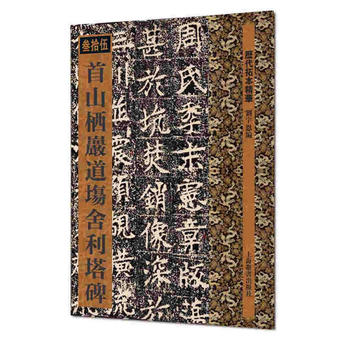 叁拾伍
首山栖巖道塲舍利塔碑
歷代拓本精華
上海辭書出版社
周氏 憲章
甚於坑焚銷像深於